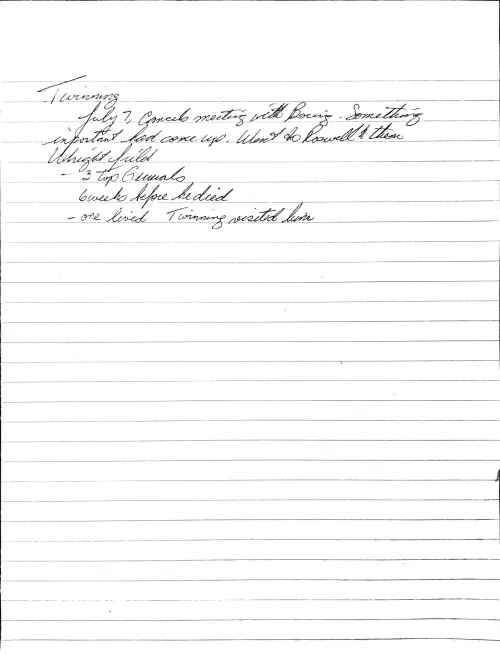 Twinning
July 7, Cancels meeting with Boeing. Something
important had come up. Went to Roswell & then
Wright field
- 3 top Generals
6 weeks before he died
- one lived Twinning visited him